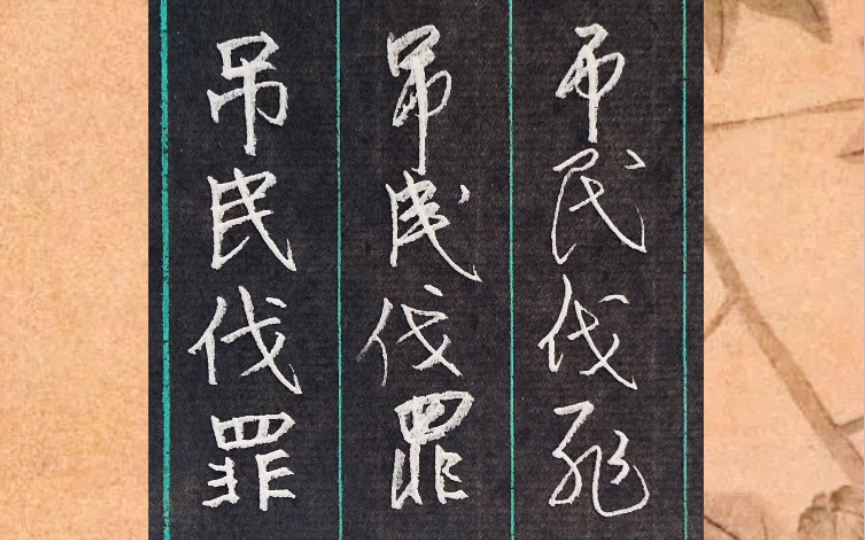 吊民伐罪
吊民伐罪
吊民伐罪